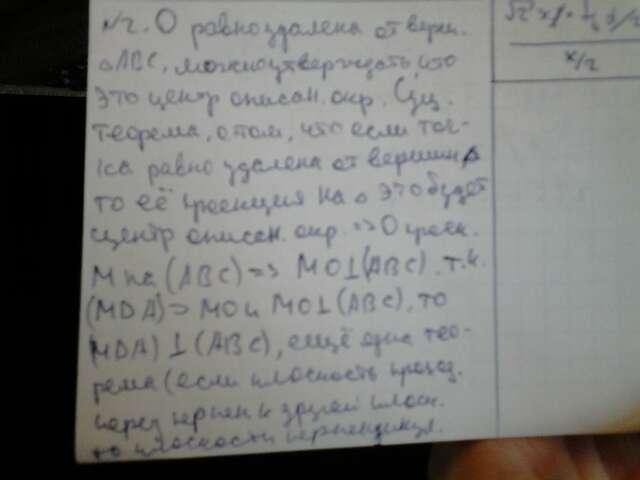 №2. О равноудалена от верш.
△ABC, можно утверждать что
это центр описан. окр. Сущ.
теорема, о том, что если точ-
ка равно удалена от вершин △
то её проекция на △ это будет
центр описан. окр. => О проек.
М на (ABC) => MO⊥(ABC). т.к.
(MDA) ⊃ MO и MO⊥(ABC), то
(MDA) ⊥ (ABC), ещё одна тео-
рема (если плоскость проход.
через перпен к другой плоск.
то плоскости перпендикул.
x/2